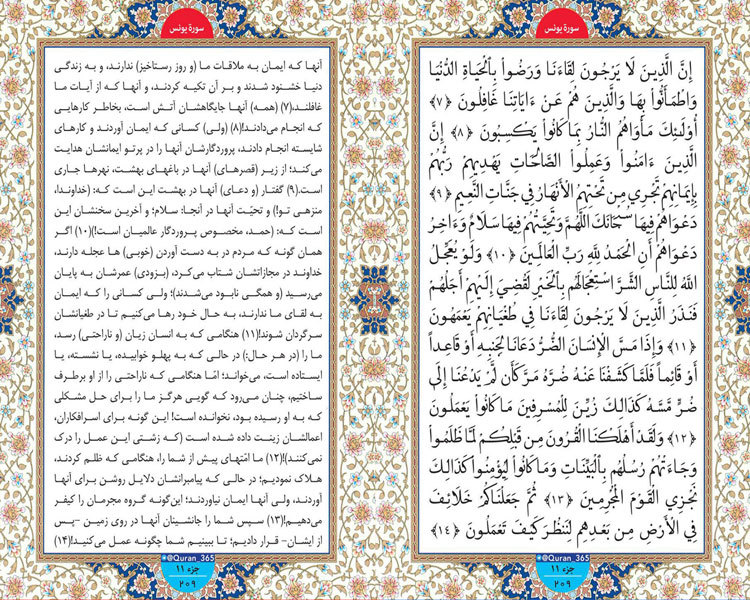 سورة یونس
إِنَّ الَّذِينَ لَا يَرْجُونَ لِقَاءَنَا وَرَضُوا بِالْحَيَاةِ الدُّنْيَا
وَاطْمَأَنُّوا بِهَا وَالَّذِينَ هُمْ عَنْ ءَايَاتِنَا غَافِلُونَ ﴿۷﴾
أُولَـٰئِكَ مَأْوَاهُمُ النَّارُ بِمَا كَانُوا يَكْسِبُونَ ﴿۸﴾ إِنَّ
الَّذِينَ ءَامَنُوا وَعَمِلُوا الصَّالِحَاتِ يَهْدِيهِمْ رَبُّهُمْ
بِإِيمَانِهِمْ تَجْرِي مِن تَحْتِهِمُ الْأَنْهَارُ فِي جَنَّاتِ النَّعِيمِ ﴿۹﴾
دَعْوَاهُمْ فِيهَا سُبْحَانَكَ اللَّهُمَّ وَتَحِيَّتُهُمْ فِيهَا سَلَامٌ وَءَاخِرُ
دَعْوَاهُمْ أَنِ الْحَمْدُ لِلَّهِ رَبِّ الْعَالَمِينَ ﴿۱۰﴾ وَلَوْ يُعَجِّلُ
اللَّهُ لِلنَّاسِ الشَّرَّ اسْتِعْجَالَهُم بِالْخَيْرِ لَقُضِيَ إِلَيْهِمْ أَجَلُهُمْ
فَنَذَرُ الَّذِينَ لَا يَرْجُونَ لِقَاءَنَا فِي طُغْيَانِهِمْ يَعْمَهُونَ
﴿۱۱﴾ وَإِذَا مَسَّ الْإِنسَانَ الضُّرُّ دَعَانَا لِجَنبِهِ أَوْ قَاعِداً
أَوْ قَائِماً فَلَمَّا كَشَفْنَا عَنْهُ ضُرَّهُ مَرَّ كَأَن لَّمْ يَدْعُنَا إِلَى
ضُرٍّ مَّسَّهُ كَذَالِكَ زُيِّنَ لِلْمُسْرِفِينَ مَا كَانُوا يَعْمَلُونَ
﴿۱۲﴾ وَلَقَدْ أَهْلَكْنَا الْقُرُونَ مِن قَبْلِكُمْ لَمَّا ظَلَمُوا
وَجَاءَتْهُمْ رُسُلُهُم بِالْبَيِّنَاتِ وَمَا كَانُوا لِيُؤْمِنُوا كَذَالِكَ
نَجْزِي الْقَوْمَ الْمُجْرِمِينَ ﴿۱۳﴾ ثُمَّ جَعَلْنَاكُمْ خَلَائِفَ
فِي الْأَرْضِ مِن بَعْدِهِمْ لِنَنظُرَ كَيْفَ تَعْمَلُونَ ﴿۱۴﴾
@Quran_365
جزء ۱۱
۲۰۹
سورة یونس
آنها که ایمان به ملاقات ما (و روز رستاخیز) ندارند، و به زندگی
دنیا خشنود شدند و بر آن تکیه کردند، و آنها که از آیات ما
غافلند،(۷) (همه) آنها جایگاهشان آتش است، بخاطر کارهایی
که انجام می‌دادند!(۸) (ولی) کسانی که ایمان آوردند و کارهای
شایسته انجام دادند، پروردگارشان آنها را در پرتو ایمانشان هدایت
می‌کند؛ از زیر (قصرهای) آنها در باغهای بهشت، نهرها جاری
است.(۹) گفتار (و دعای) آنها در بهشت این است که: (خداوندا،
منزهی تو!) و تحیّت آنها در آنجا: سلام؛ و آخرین سخنشان این
است که: (حمد، مخصوص پروردگار عالمیان است!)(۱۰) اگر
همان گونه که مردم در به دست آوردن (خوبی) ها عجله دارند،
خداوند در مجازاتشان شتاب می‌کرد، (بزودی) عمرشان به پایان
می‌رسید (و همگی نابود می‌شدند)؛ ولی کسانی را که ایمان
به لقای ما ندارند، به حال خود رها می‌کنیم تا در طغیانشان
سرگردان شوند!(۱۱) هنگامی که به انسان زیان (و ناراحتی) رسد،
ما را (در هر حال:) در حالی که به پهلو خوابیده، یا نشسته، یا
ایستاده است، می‌خواند؛ امّا هنگامی که ناراحتی را از او برطرف
ساختیم، چنان می‌رود که گویی هرگز ما را برای حل مشکلی
که به او رسیده بود، نخوانده است! این گونه برای اسرافکاران،
اعمالشان زینت داده شده است (که زشتی این عمل را درک
نمی‌کنند)!(۱۲) ما امّتهای پیش از شما را، هنگامی که ظلم کردند،
هلاک نمودیم؛ در حالی که پیامبرانشان دلایل روشن برای آنها
آوردند، ولی آنها ایمان نیاوردند؛ این‌گونه گروه مجرمان را کیفر
می‌دهیم!(۱۳) سپس شما را جانشینان آنها در روی زمین -پس
از ایشان- قرار دادیم؛ تا ببینیم شما چگونه عمل می‌کنید!(۱۴)
@Quran_365
جزء ۱۱
۲۰۹